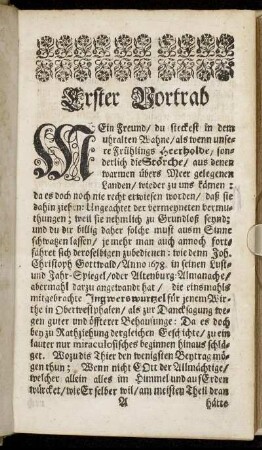 Erster Vortrab
MEin Freund/ du steckest in dem
uhralten Wahne/ als wenn unse-
re Frühlings Herholde/ son-
derlich die Störche/ aus denen
warmen übers Meer gelegenen
Landen/ wieder zu uns kämen:
da es doch noch nie recht erwiesen worden/ daß sie
dahin ziehen: Ungeachtet der vermeyneten vermu-
thungen; weil sie nehmlich zu Grundloß seynd;
und du dir billig daher solche must aus m Sinne
schwatzen lassen/ je mehr man auch annoch fort-
fähret sich deroselbigen zubedienen: wie denn Joh.
Christoph Gottwald/ Anno 1678. in seinen Lust-
und Jahr-Spiegel/ oder Altenburg. Almanache/
abermahl darzu angewandt hat/ die einsmahls
mitgebrachte Ingwerowurtzel für jenem Wir-
the in Oberwestphalen/ als zur Dancksagung we-
gen guter und öffterer Behausunge: Da es doch
bey zu Rathziehung dergleichen Geschichte/ zu ein
lauter nur miraculosisches beginnen hinaus schlä-
get. Wozu dis Thier den wenigsten Beytrag mö-
gen thun; Wenn nicht GOtt der Allmächtige/
welcher allein alles im Himmel und auf Erden
würcket/ wie Er selber wil/ am meisten Theil dran
A hätte